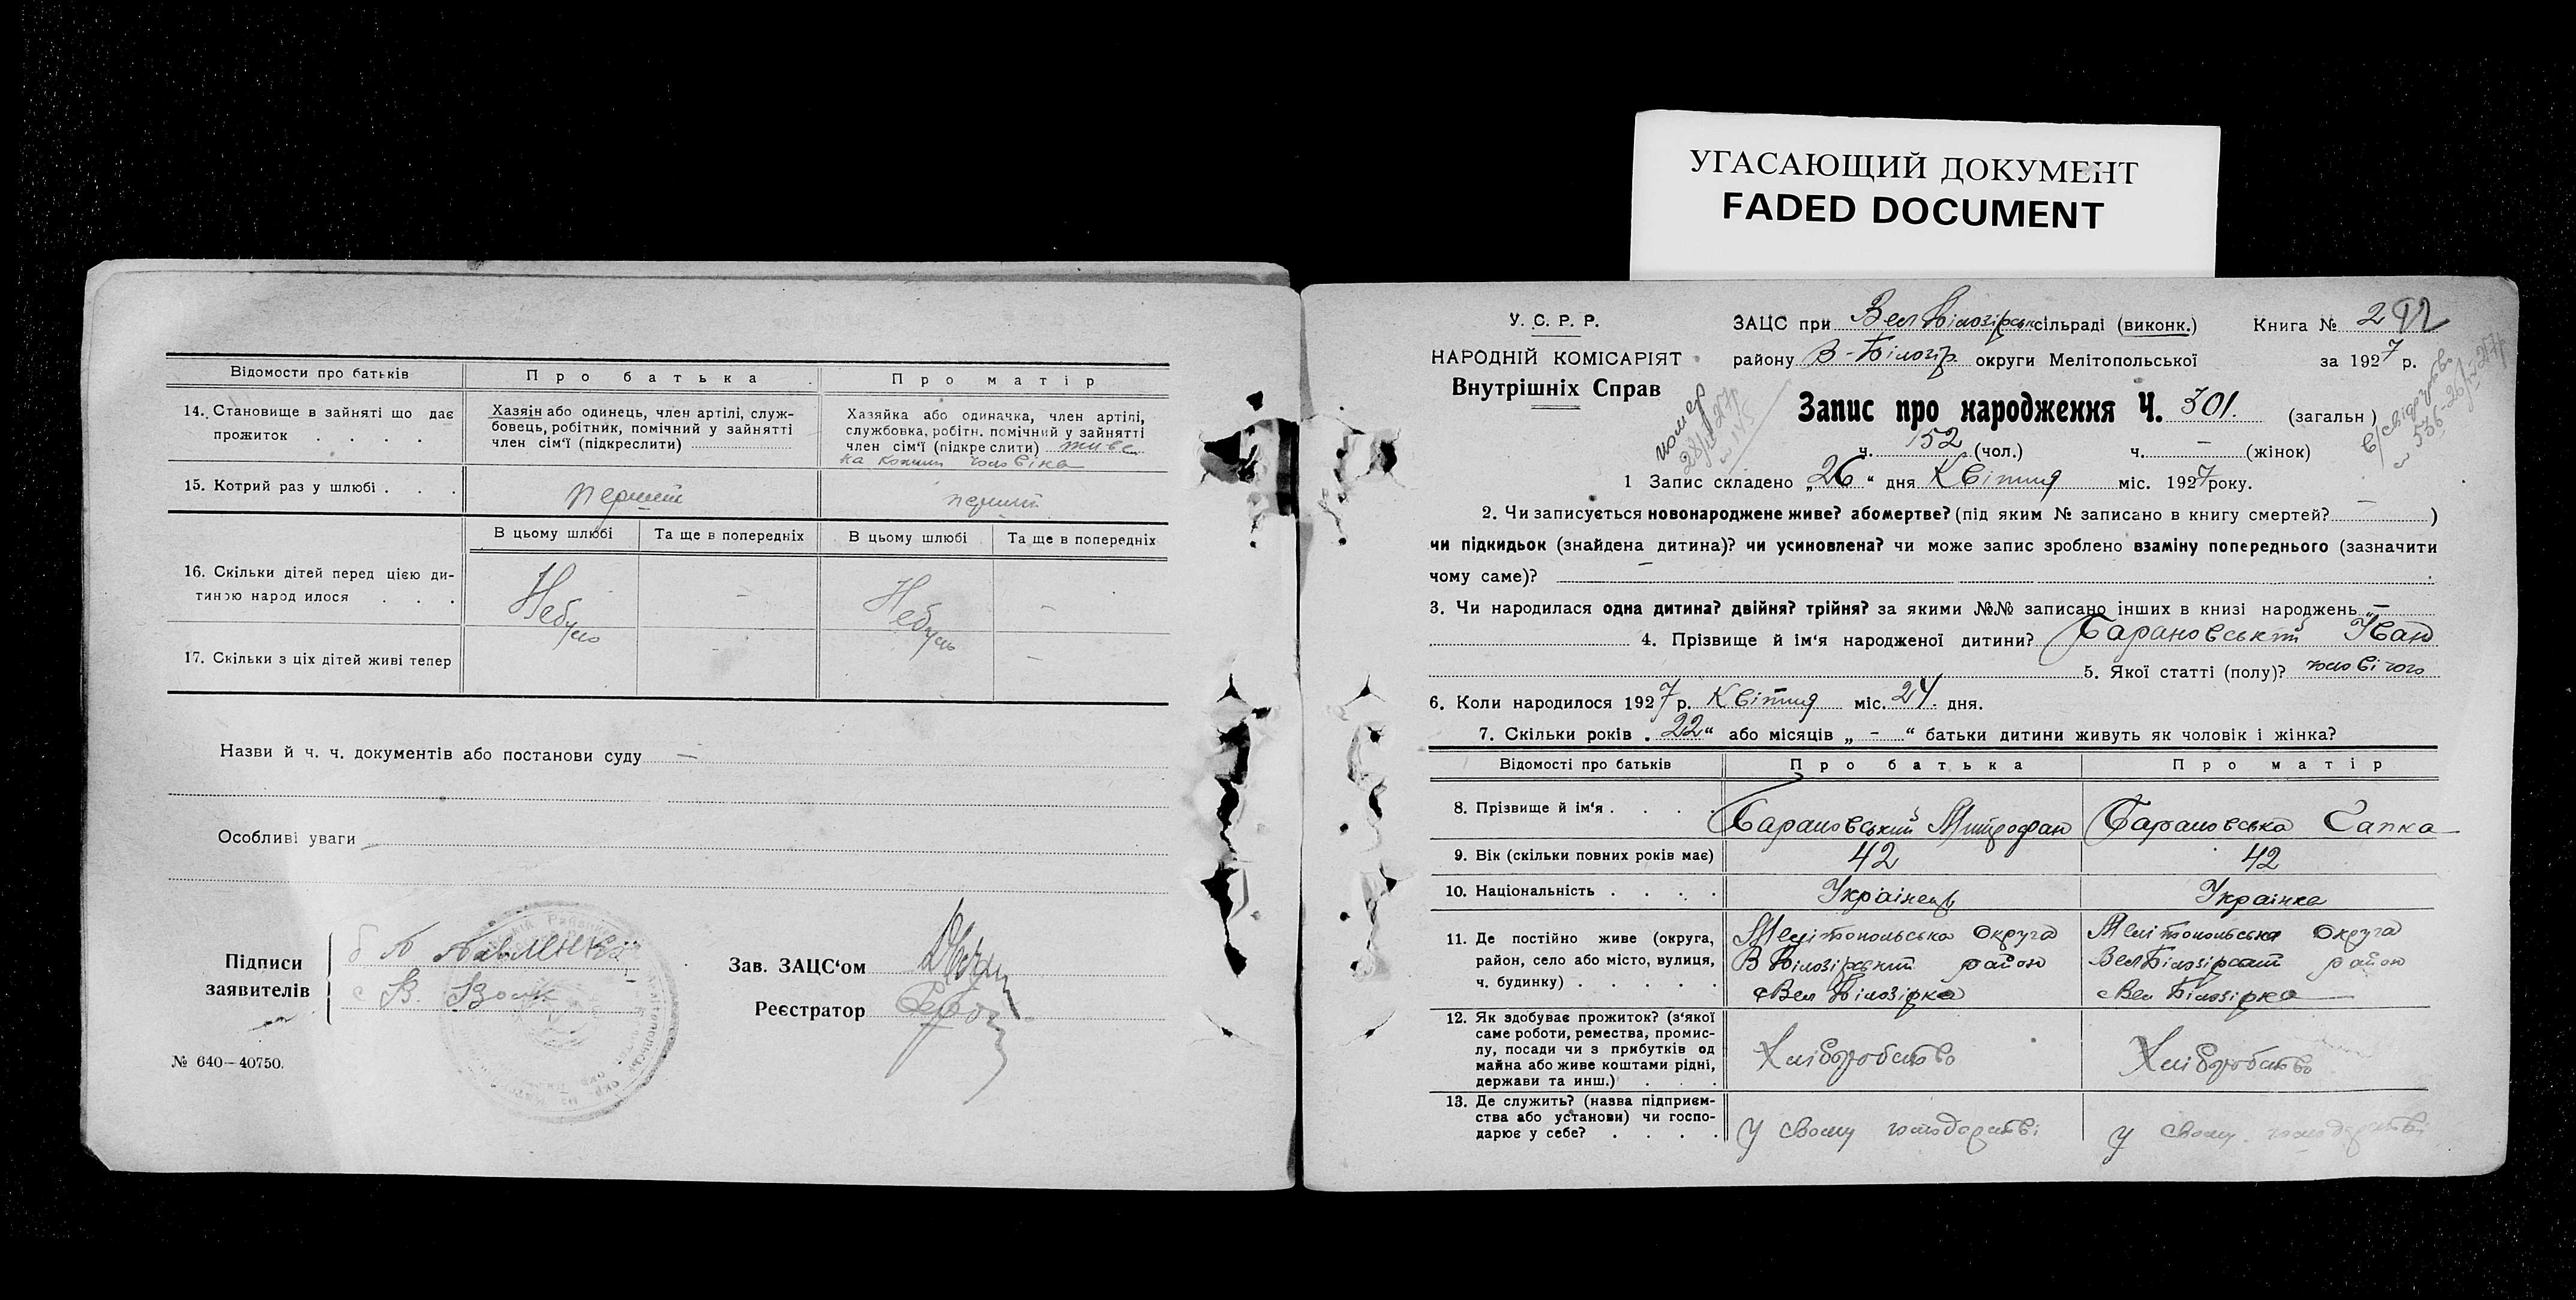 УГАСАЮЩИЙ ДОКУМЕНТ
FADED DOCUMENT
Відомости про батьків
Про батька
Про матір
14. Становище в зайняті що дає
прожиток . . . .
Хазяін або одинець, член артілі, служ-
бовець, робітник, помічний у зайнятті
член сім'ї (підкреслити)
Хазяйка або одиначка, член артілі,
службовка, робітн. помічний у зайнятті
член сім'ї (підкреслити) живе
на кошти чоловіка
15. Котрий раз у шлюбі . . .
перший
перший
В цьому шлюбі
Та ще в попередніх
В цьому шлюбі
Та ще в попередніх
16. Скільки дітей перед цією ди-
тиною народилося . . .
Небуло
-
Небуло
-
17. Скільки з ціх дітей живі тепер
-
-
Назви й ч. ч. документів або постанови суду —
Особливі уваги
Підписи
заявителів
Зав. ЗАЦС'ом
Реєстратор
№ 640—40750.
У. С. Р. Р.
НАРОДНІЙ КОМІСАРІЯТ
Внутрішніх Справ
ЗАЦС при Вел Білозірськ сільраді (виконк.)
Книга № 292
району В-Білозір. округи Мелітопольської
за 1927 р.
помер
Запис про народження Ч. 301. (загальн)
ч. 152 (чол.) ч. — (жінок)
1 Запис складено „26" дня Квітня міс. 1927 року.
2. Чи записується новонароджене живе? або мертве? (під яким № записано в книгу смертей? — )
чи підкидьок (знайдена дитина)? чи усиновлена? чи може запис зроблено взаміну попереднього (зазначити
чому саме)? —
3. Чи народилася одна дитина? двійня? трійня? за якими №№ записано інших в книзі народжень „—
4. Прізвище й ім'я народженої дитини? Барановський Іван
5. Якої статті (полу)? чоловічого
6. Коли народилося 1927 р. Квітня міс. 24 дня.
7. Скільки років „22" або місяців „ - " батьки дитини живуть як чоловік і жінка?
Відомості про батьків
Про батька
Про матір
8. Прізвище й ім'я . . . .
Барановський Митрофан
Барановська Гапка
9. Вік (скільки повних років має)
42
42
10. Національність . . . .
Українець
Українка
11. Де постійно живе (округа,
район, село або місто, вулиця,
ч. будинку) . . . . .
Мелітопольська Округа
В Білозірський район
с Вел Білозірка
Мелітопольська Округа
Вел Білозірський район
с Вел Білозірка
12. Як здобуває прожиток? (з'якої
саме роботи, ремества, промис-
лу, посади чи з прибутків од
майна або живе коштами рідні,
держави та инш.) . . .
Хліборобство
Хліборобство
13. Де служить? (назва підприєм-
ства або установи) чи госпо-
дарює у себе? . . . .
У свому господарстві
У свому господарстві